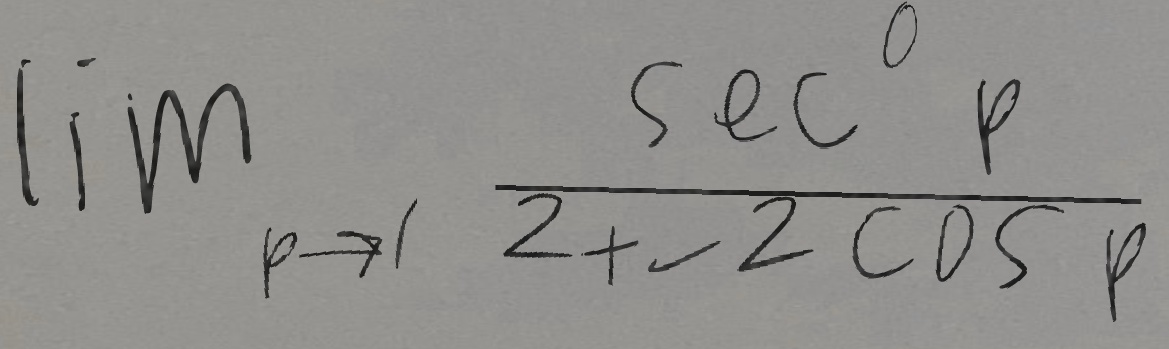 \lim_{p \to 1} \frac{\sec^{0} p}{2 + -2 \cos p}